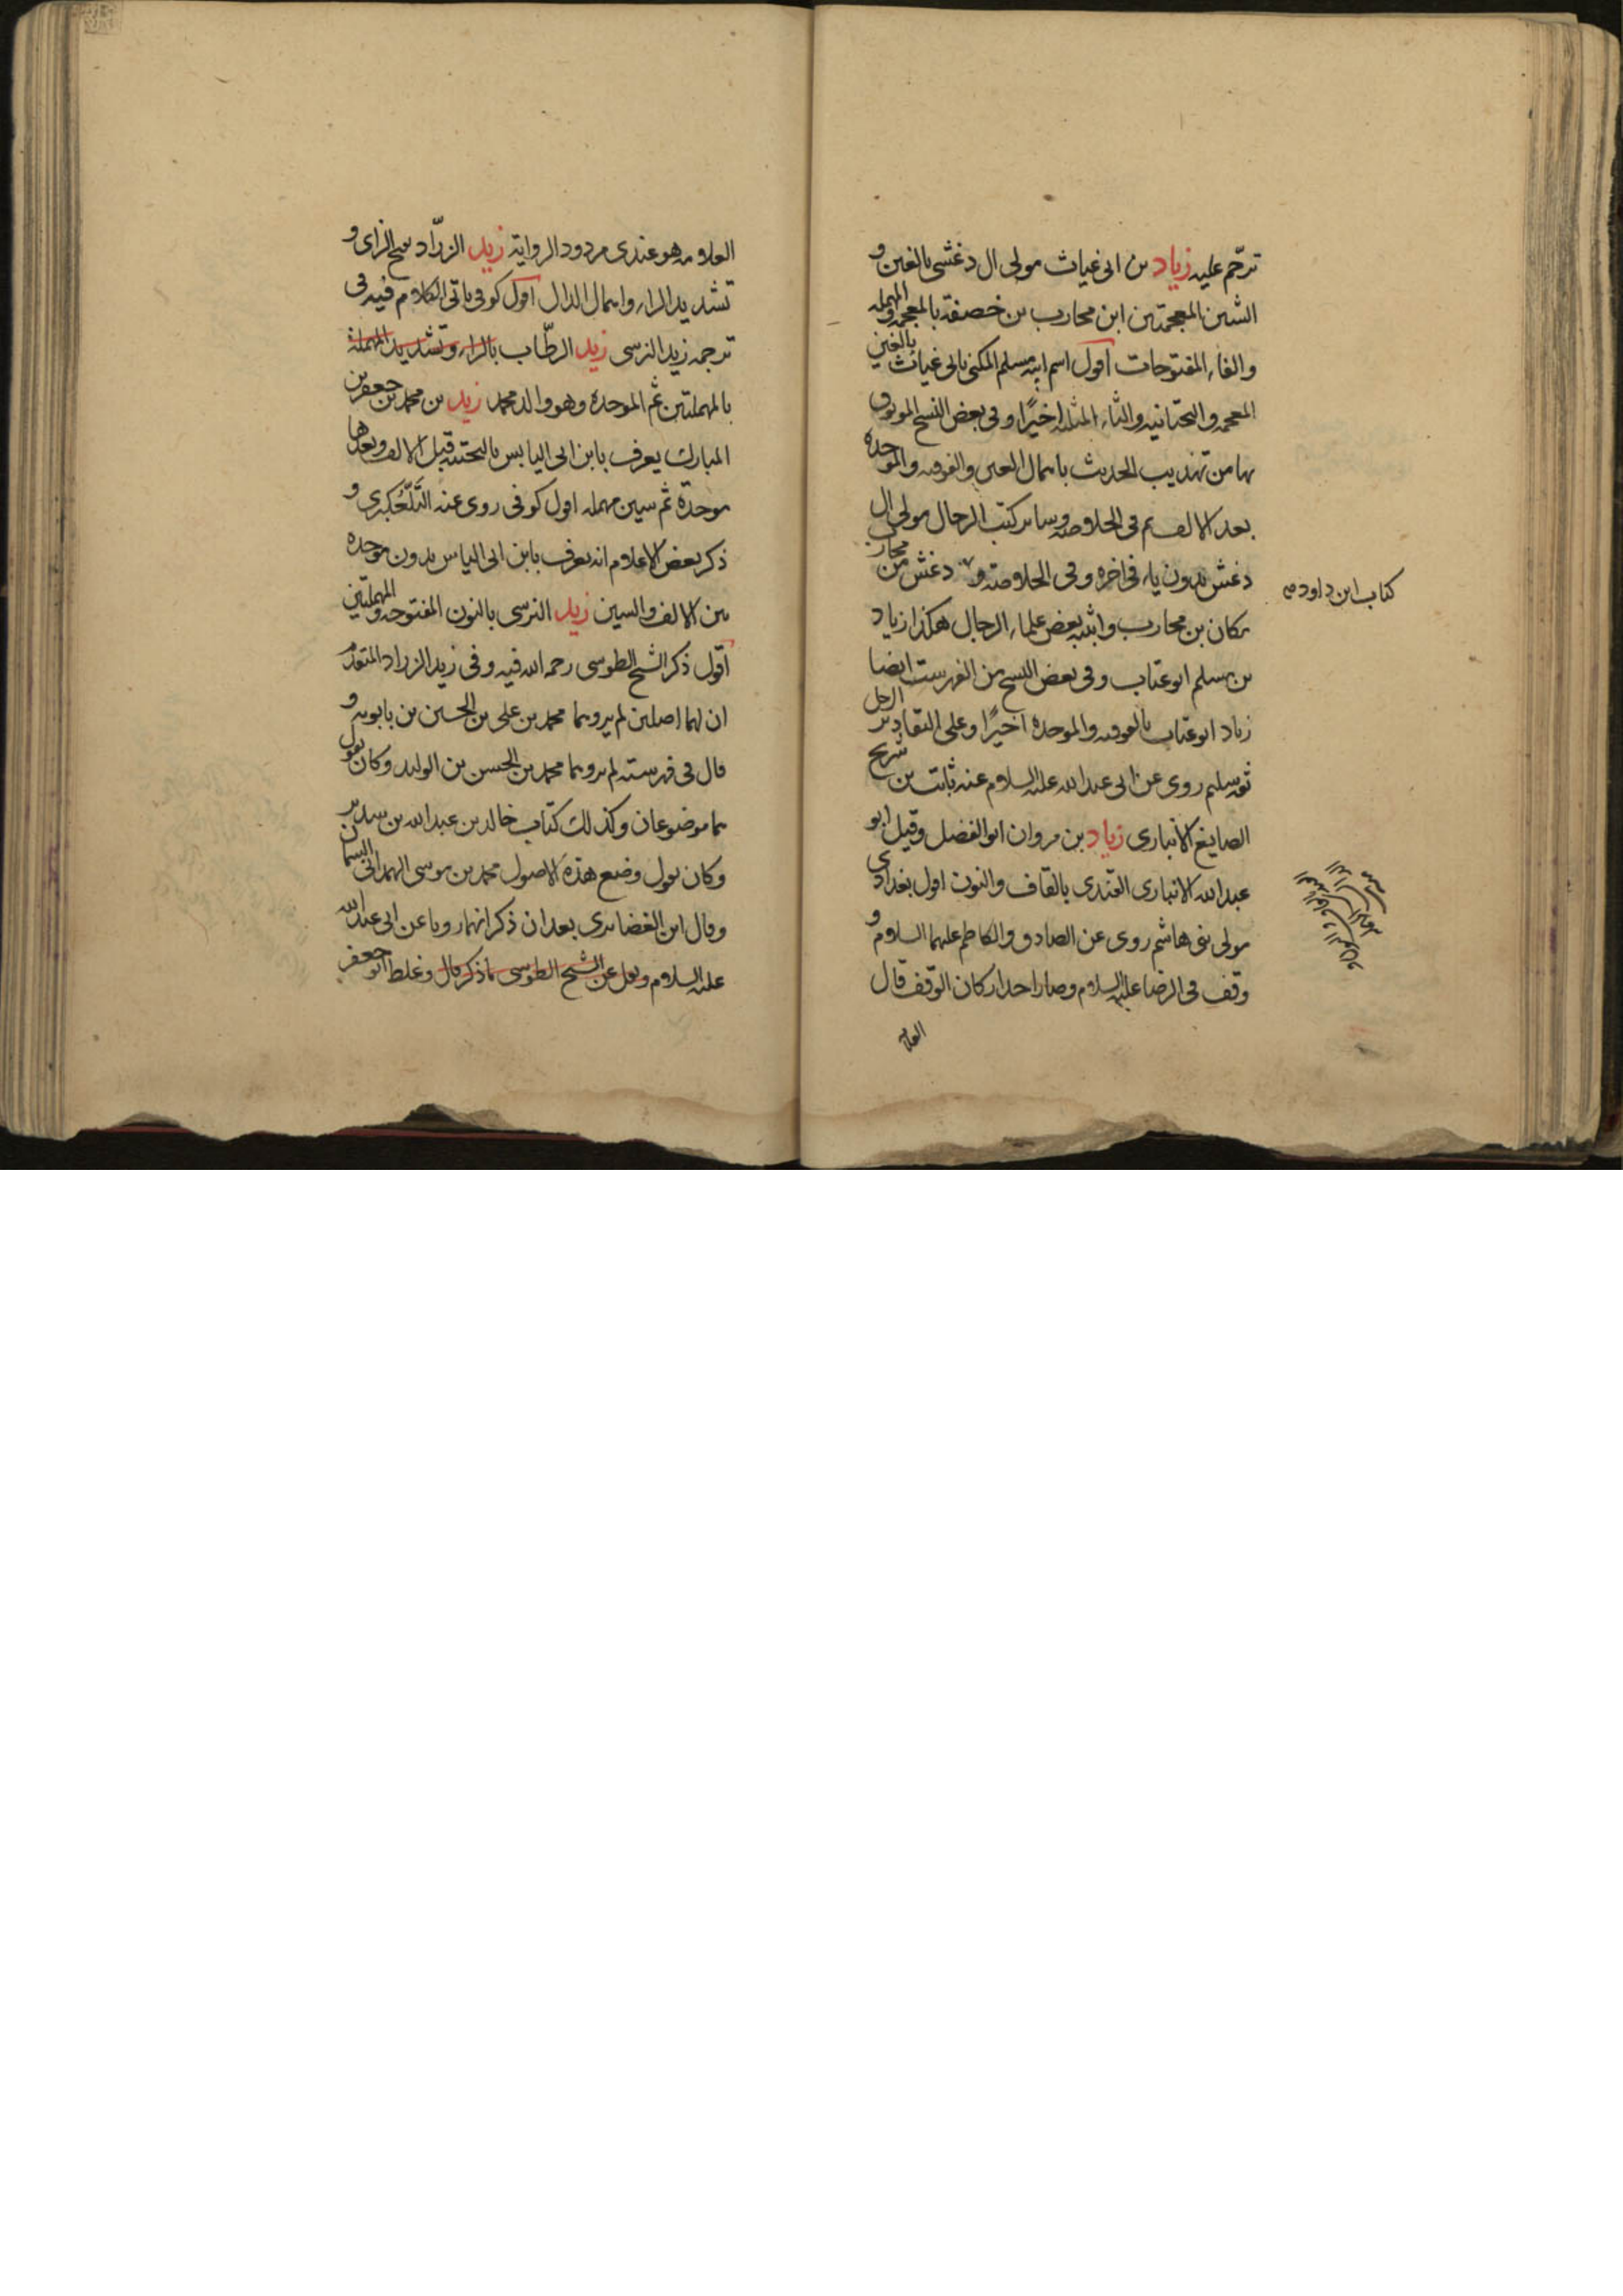 ترحّم عليه زياد بن ابى غياث مولى ال دغشى بالغين و
الشين المعجمتين ابن محارب بن خصفة بالمعجمه و المهمله
والفاء المفتوحات اقول اسم ابيه مسلم المكنى بابى غياث بالغين
المعجمه و التحتانيه والثاء المثلثه اخيرًا وفى بعض النسخ الموثوق
بها من تهذيب الحديث باهمال العين والفوقيه والموحده
بعد الالف ثم فى الخلاصه وساير كتب الرجال مولى ال
دغش بدون ياء فى اخره وفى الخلاصة و دغش من محارب
مكان بن محارب واثبته بعض علماء الرجال هكذا زياد
بن مسلم ابو عتاب وفى بعض النسخ من الفهرست ايضا
زياد ابو عتاب بالفوقيه والموحده اخيرًا وعلى التقادير الرجل
ثقه سليم روى عن ابى عبدالله عليه السلام عنه ثابت بن شريح
الصايغ الانبارى زياد بن مروان ابو الفضل وقيل ابو
عبدالله الانبارى القندى بالقاف والنون اقول بغدادى
مولى بنى هاشم روى عن الصادق والكاظم عليهما السلام و
وقف فى الرضا عليه السلام وصار احد اركان الوقف قال
كتاب ابن داود
العلامة
العلامه هو عندى مردود الرواية زيد الزرّاد بفتح الزاى و
تشديد الراء واهمال الدال اقول كوفى ياتى الكلام فيه فى
ترجمه زيد النرسى زيد الرطّاب بالراء وتشديد المهملة
بالمهملتين ثم الموحده وهو والد محمد زيد بن محمد بن جعفر بن
المبارك يعرف بابن ابى اليابس بالتحتيه قبل الالف وبعدها
موحدة ثم سين مهمله اقول كوفى روى عنه التَلَّعُكبرى و
ذكر بعض الاعلام انه يعرف بابن ابى الياس بدون موحده
بين الالف والسين زيد النرسى بالنون المفتوحه و المهملتين
اقول ذكر الشيخ الطوسى رحمه الله فيه وفى زيد الزراد المتقدم
ان لهما اصلين لم يروهما محمد بن على بن الحسين بن بابويه و
قال فى فهرسته لم يروهما محمد بن الحسن بن الوليد وكان يقول
هما موضوعان وكذلك كتاب خالد بن عبدالله بن سدير
وكان يقول وضع هذه الاصول محمد بن موسى الهمدانى السمان
وقال ابن الغضايرى بعد ان ذكر انهما رويا عن ابى عبدالله
عليه السلام ونقل عن الشيخ الطوسى ما ذكر قال وغلط ابو جعفر